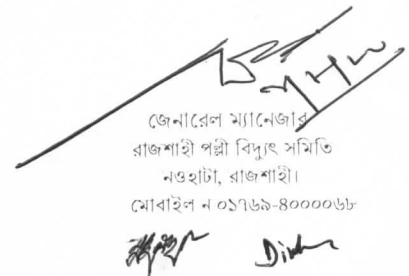 জেনারেল ম্যানেজার
রাজশাহী পল্লী বিদ্যুৎ সমিতি
নওহাটা, রাজশাহী।
মোবাইল ন ০১৭৬৯-৪০০০০৬৮